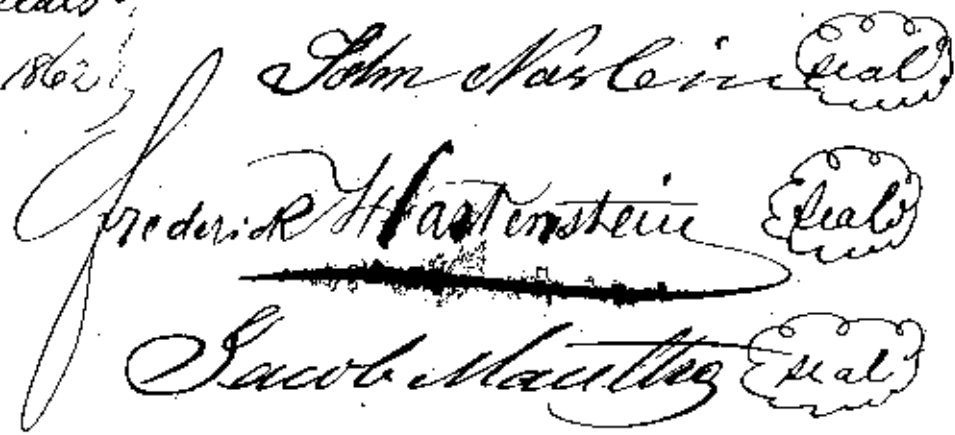 1862
John Naslein seal
Frederick Hartenstein seal
Jacob seal